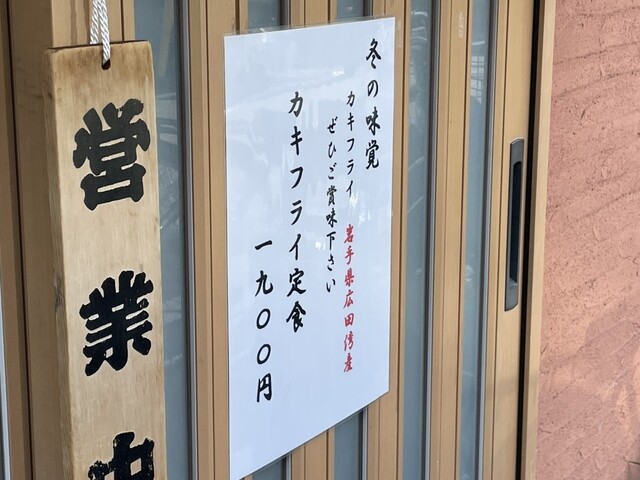 冬の味覚
カキフライ 岩手県広田湾産
ぜひご賞味下さい
カキフライ定食
一九〇〇円
営業中